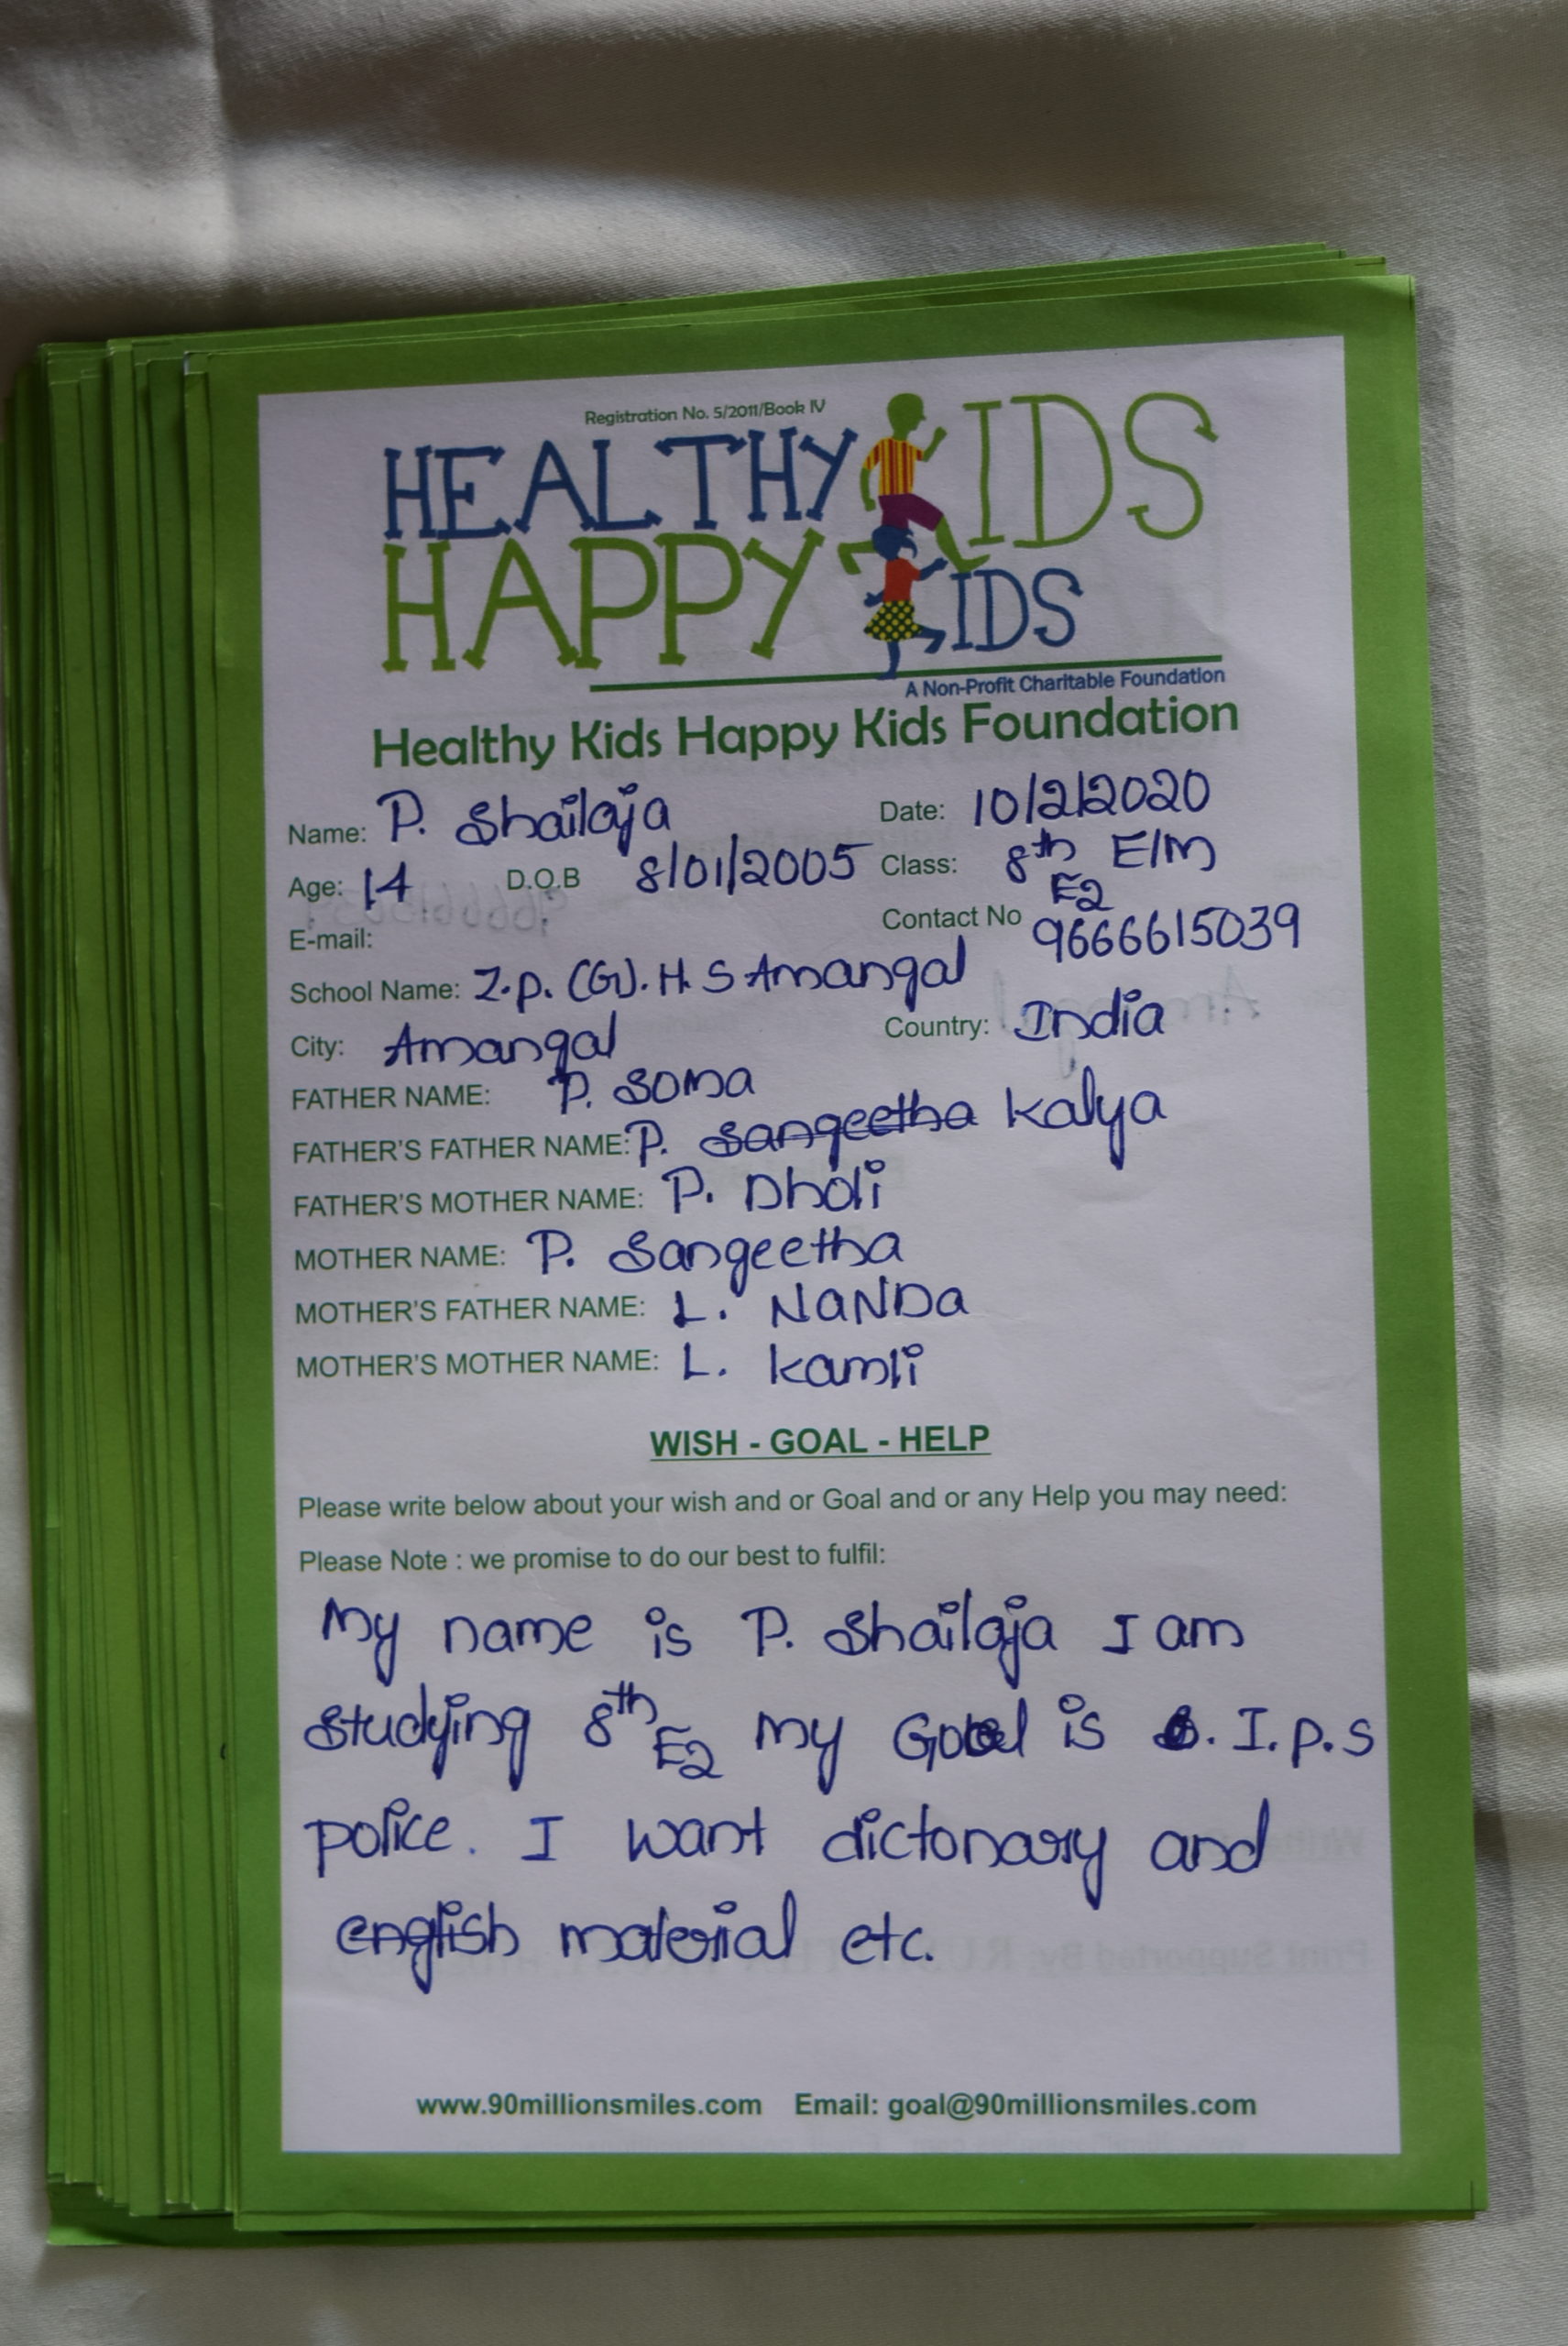 Registration No. 5/2011/Book IV
HEALTHY KIDS
HAPPY KIDS
A Non-Profit Charitable Foundation
Healthy Kids Happy Kids Foundation
Name: P. Shailaja Date: 10/2/2020
Age: 14 D.O.B 8/01/2005 Class: 8th E/M
E2
E-mail: Contact No 9666615039
School Name: Z.p. (G). H. S Amangal
City: Amangal Country: India
FATHER NAME: P. Soma
FATHER'S FATHER NAME: P. Sangeetha Kalya
FATHER'S MOTHER NAME: P. Dholi
MOTHER NAME: P. Sangeetha
MOTHER'S FATHER NAME: L. NaNDa
MOTHER'S MOTHER NAME: L. kamli
WISH - GOAL - HELP
Please write below about your wish and or Goal and or any Help you may need:
Please Note : we promise to do our best to fulfil:
My name is P. Shailaja I am
studying 8th E2 my Goal is I.P.S
police. I want dictonary and
english material etc.
www.90millionsmiles.com Email: goal@90millionsmiles.com